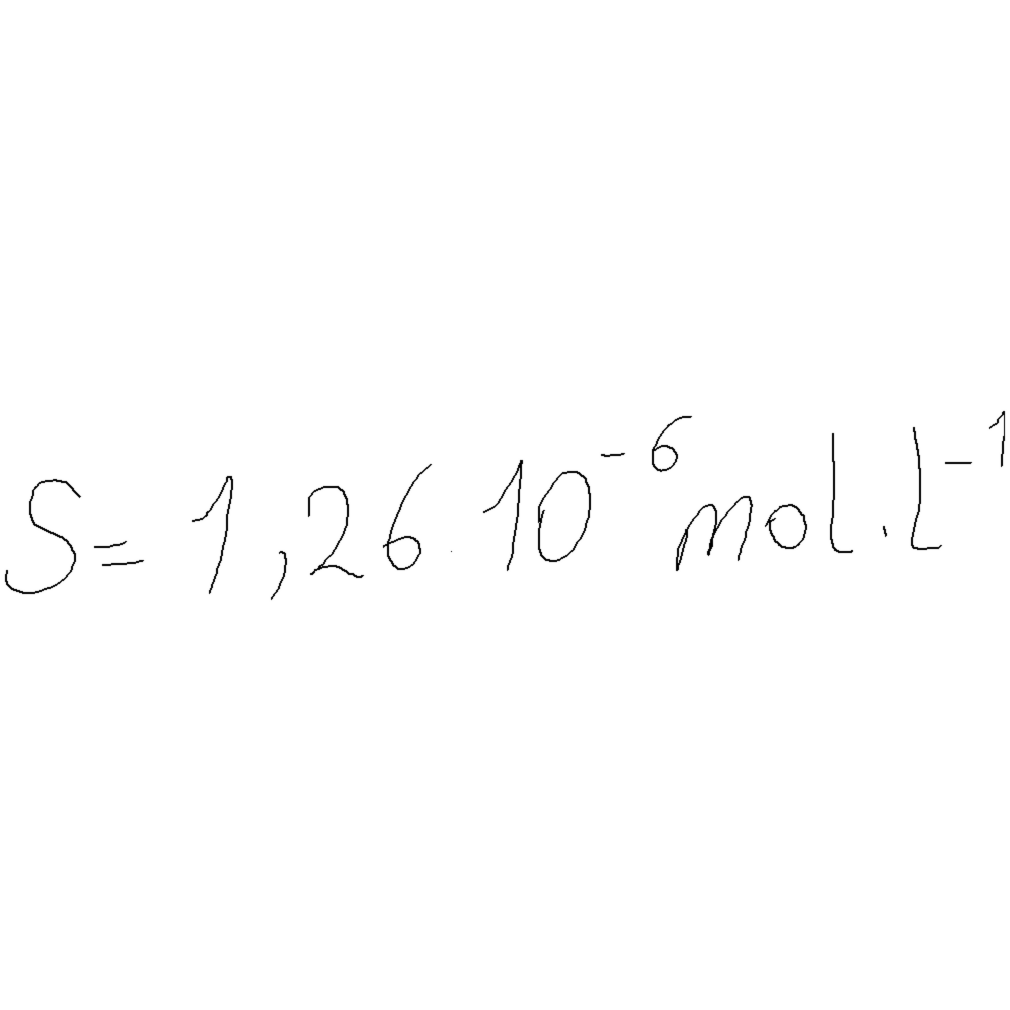 S = 1,26.10⁻⁶ mol.l⁻¹